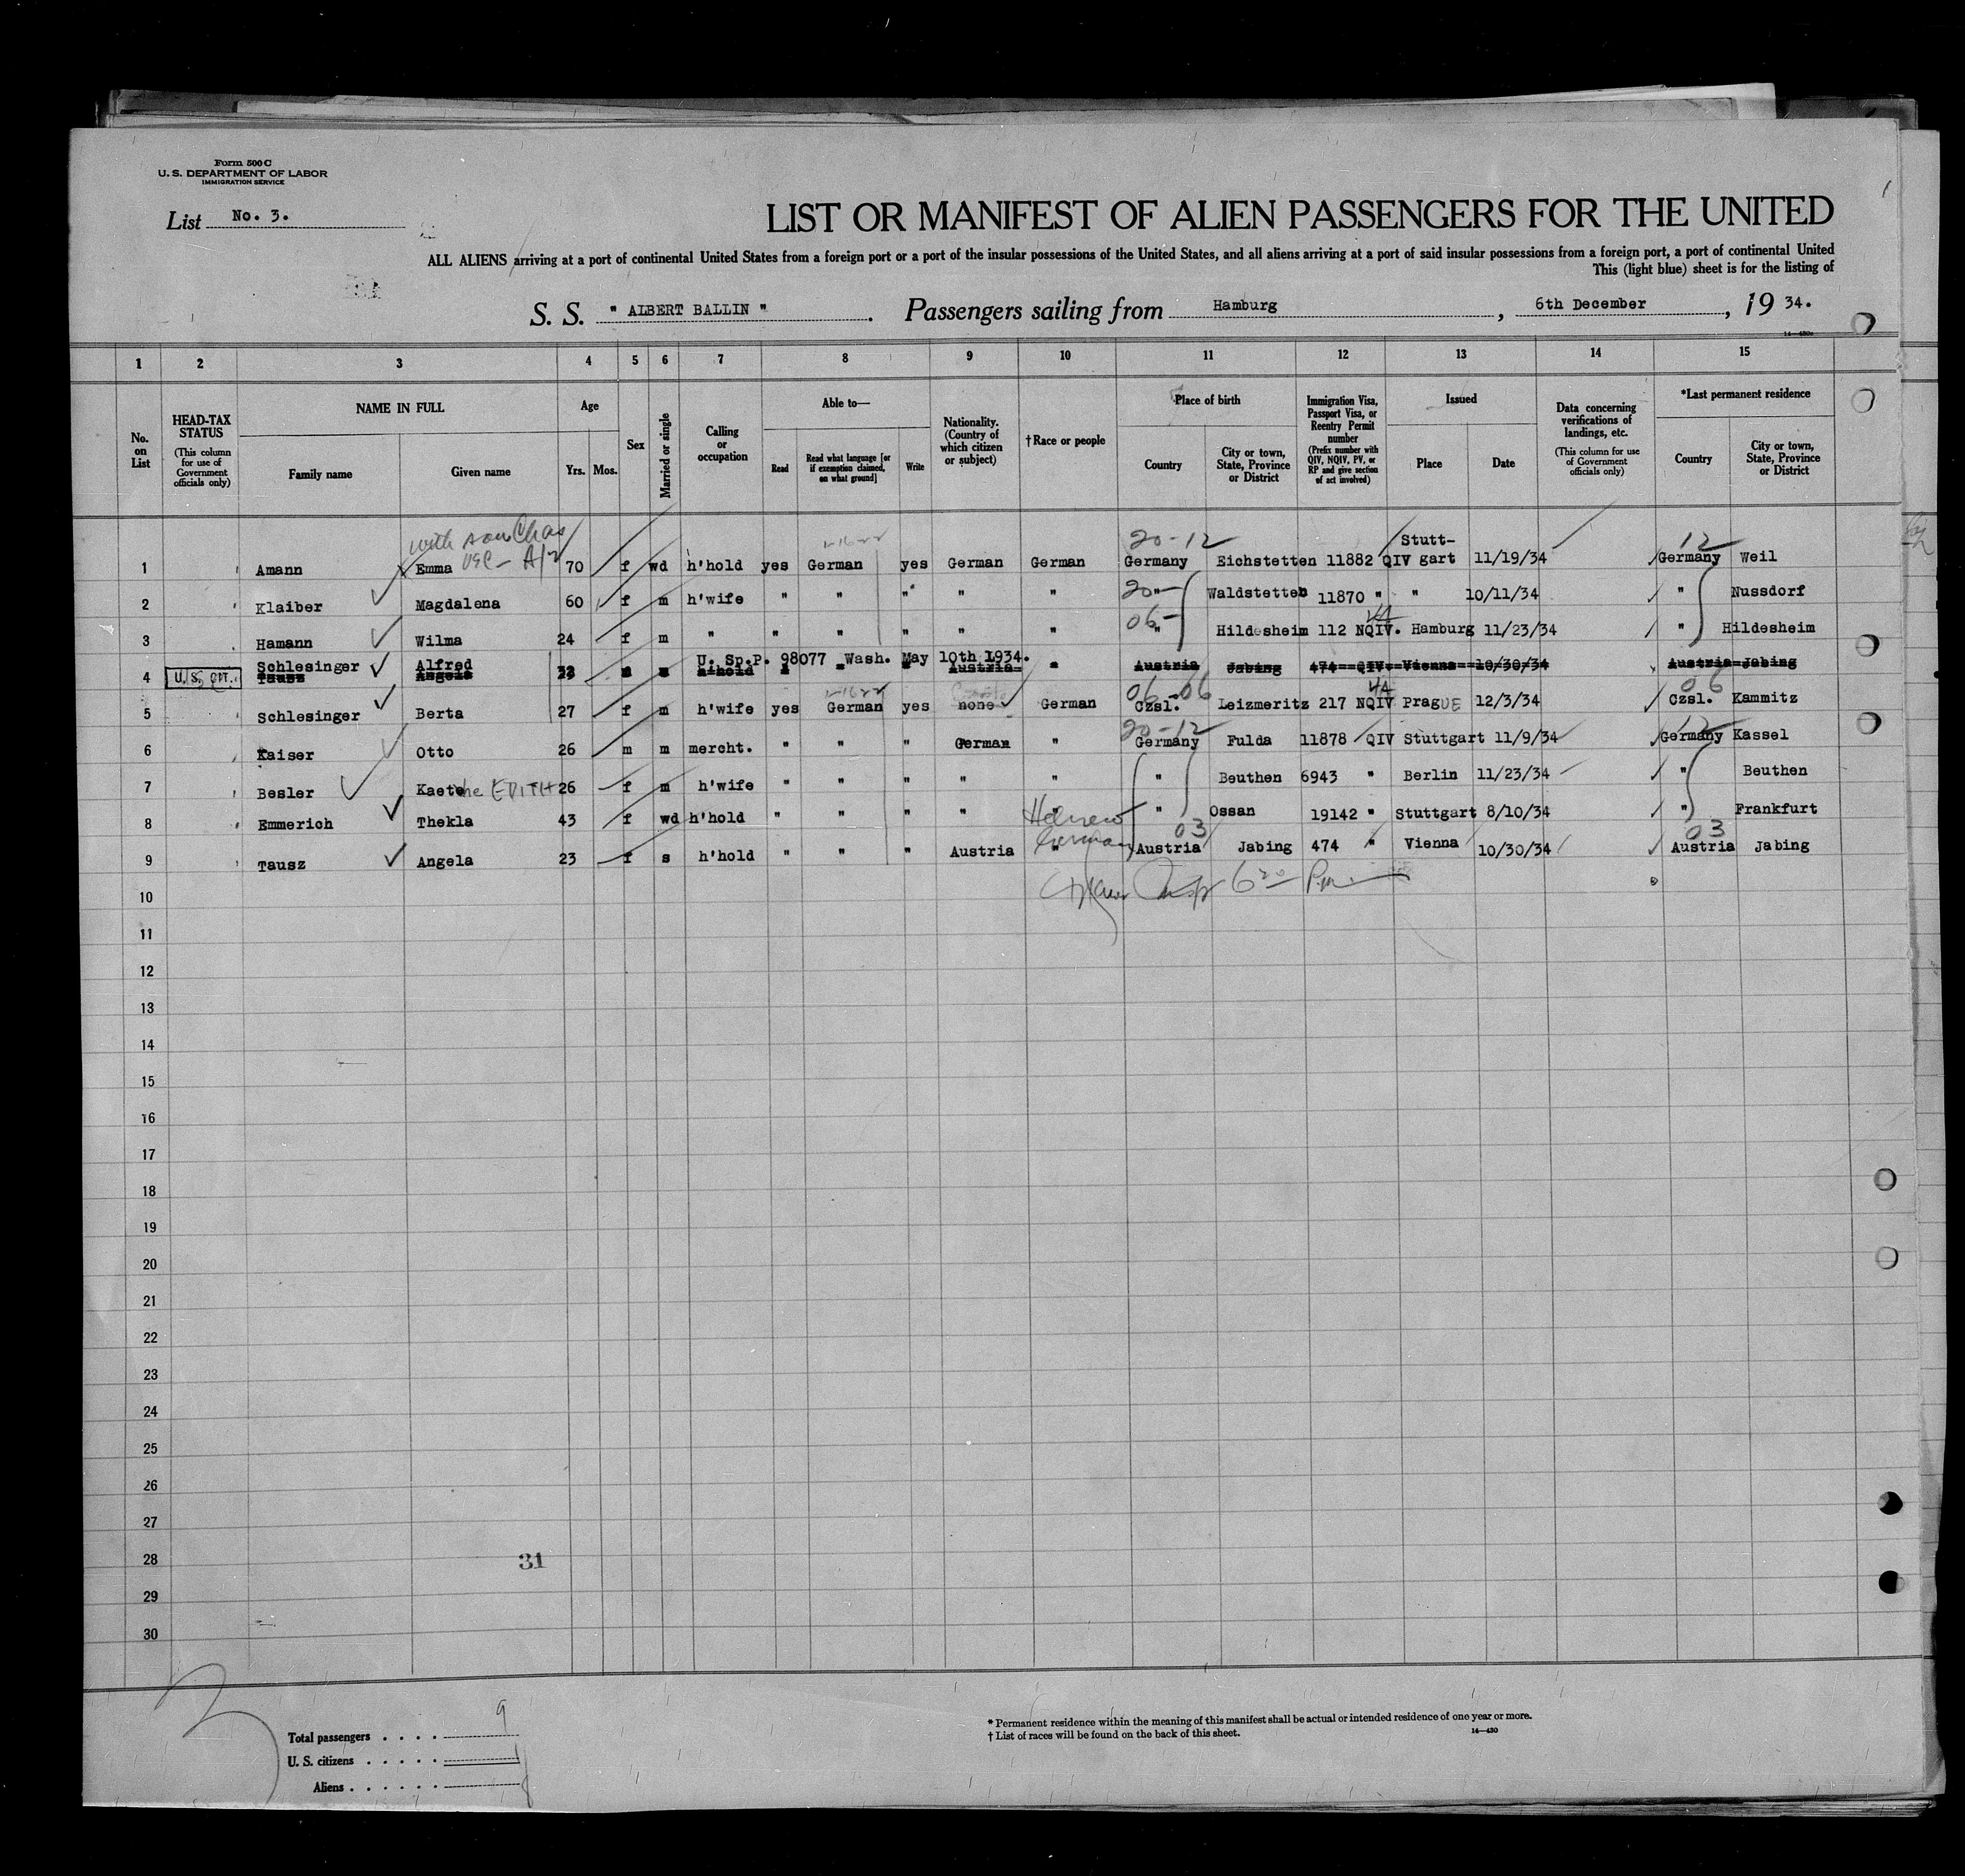 Form 500 C
U. S. DEPARTMENT OF LABOR
IMMIGRATION SERVICE
List No. 3.
LIST OR MANIFEST OF ALIEN PASSENGERS FOR THE UNITED
ALL ALIENS arriving at a port of continental United States from a foreign port or a port of the insular possessions of the United States, and all aliens arriving at a port of said insular possessions from a foreign port, a port of continental United
This (light blue) sheet is for the listing of
S. S. " ALBERT BALLIN " . Passengers sailing from Hamburg , 6th December , 19 34.
1 2 3 4 5 6 7 8 9 10 11 12 13 14 15
No. on List
HEAD-TAX STATUS (This column for use of Government officials only)
NAME IN FULL
Family name Given name
Age
Yrs. Mos.
Sex
Married or single
Calling or occupation
Able to—
Read
Read what language [or if exemption claimed, on what ground]
Write
Nationality. (Country of which citizen or subject)
†Race or people
Place of birth
Country
City or town, State, Province or District
Immigration Visa, Passport Visa, or Reentry Permit number (Prefix number with QIV, NQIV, PV, or RP and give section of act involved)
Issued
Place Date
Data concerning verifications of landings, etc. (This column for use of Government officials only)
*Last permanent residence
Country
City or town, State, Province or District
with son Chas
20-12 Stutt- 12
1 Amann Emma 70 f wd h'hold yes German yes German German Germany Eichstetten 11882 QIV gart 11/19/34 Germany Weil
20-
2 Klaiber Magdalena 60 f m h'wife " " " " " " Waldstetten 11870 " " 10/11/34 " Nussdorf
06- 4A
3 Hamann Wilma 24 f m " " " " " " " Hildesheim 112 NQIV. Hamburg 11/23/34 " Hildesheim
Schlesinger Alfred U. S. P. 98077 Wash. May 10th 1934.
4 U. S. CIT. Tausz Angela h'hold Austria " Austria Jabing 474 QIV. Vienna 10/30/34 Austria Jabing
06 06 4A 06
5 Schlesinger Berta 27 f m h'wife yes German yes none German Czsl. Leizmeritz 217 NQIV PragUE 12/3/34 Czsl. Kammitz
20-12 12
6 Kaiser Otto 26 m m mercht. " " " German " Germany Fulda 11878 QIV Stuttgart 11/9/34 Germany Kassel
7 Besler Kaethe EDITH 26 f m h'wife " " " " " " Beuthen 6943 " Berlin 11/23/34 " Beuthen
8 Emmerich Thekla 43 f wd h'hold " " " " Hebrew " Ossan 19142 " Stuttgart 8/10/34 " Frankfurt
03 03
9 Tausz Angela 23 f s h'hold " " " Austria German Austria Jabing 474 " Vienna 10/30/34 Austria Jabing
10
11
12
13
14
15
16
17
18
19
20
21
22
23
24
25
26
27
28 31
29
30
Total passengers . . . . 9
U. S. citizens . . . . . 1
Aliens . . . . . . 8
* Permanent residence within the meaning of this manifest shall be actual or intended residence of one year or more.
† List of races will be found on the back of this sheet.
14—430